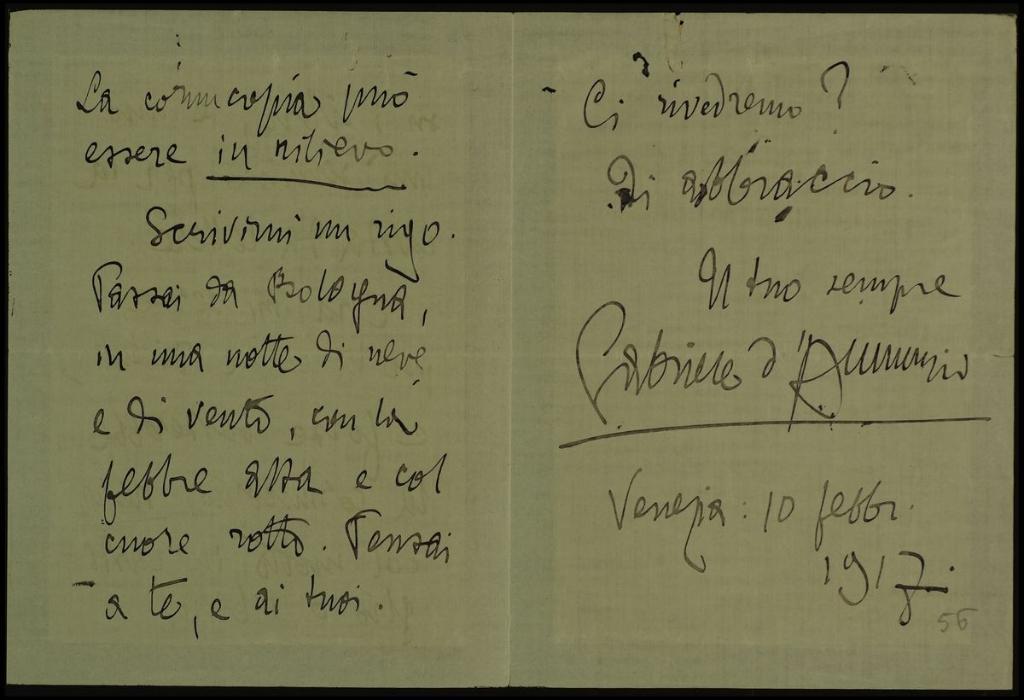 La cornucopia può
essere in rilievo.
Scrivimi un rigo.
Passai da Bologna,
in una notte di neve
e di vento, con la
febbre alta e col
cuore rotto. Pensai
a te, e ai tuoi.
Ci rivedremo?
Ti abbraccio.
Il tuo sempre
Gabriele d'Annunzio
Venezia: 10 febbr.
1917.
56